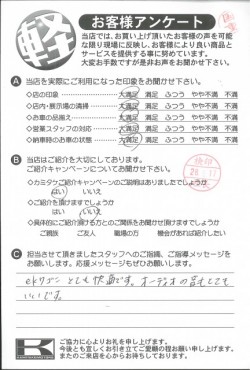 軽
お客様アンケート
当店では、お買い上げ頂いたお客様の声を可能
な限り現場に反映し、お客様により良い商品と
サービスを提供する事に努めています。
大変お手数ですが是非お声をお聞かせ下さい。
A 当店を実際にご利用になった印象をお聞かせ下さい。
◇店の印象 大満足 満足 ふつう やや不満 不満
◇店内・展示場の清掃 大満足 満足 ふつう やや不満 不満
◇お車の品揃え 大満足 満足 ふつう やや不満 不満
◇営業スタッフの対応 大満足 満足 ふつう やや不満 不満
◇納車時のお車の状態 大満足 満足 ふつう やや不満 不満
B 当店はご紹介を大切にしております。
ご紹介キャンペーンについてお聞かせ下さい。
◇カミタケご紹介キャンペーンのご説明はありましたでしょうか
はい いいえ
◇ご紹介を頂けますでしょうか
はい いいえ
◇具体的にご紹介頂ける方とのご関係をお聞かせ頂けますでしょうか
ご親族 ご友人 職場の方 機会があれば紹介したい
C 担当させて頂きましたスタッフへのご指摘、ご指導メッセージを
お願いします。応援メッセージもぜひお願いします。
ekワゴン とても快適です。オーディオの音もとても
いいです。
K
ご協力に心よりお礼を申し上げます。
今後とも宜しくお引き立てご愛顧の程お願い申し上げます。
またのご来店を心からお待ちしております。